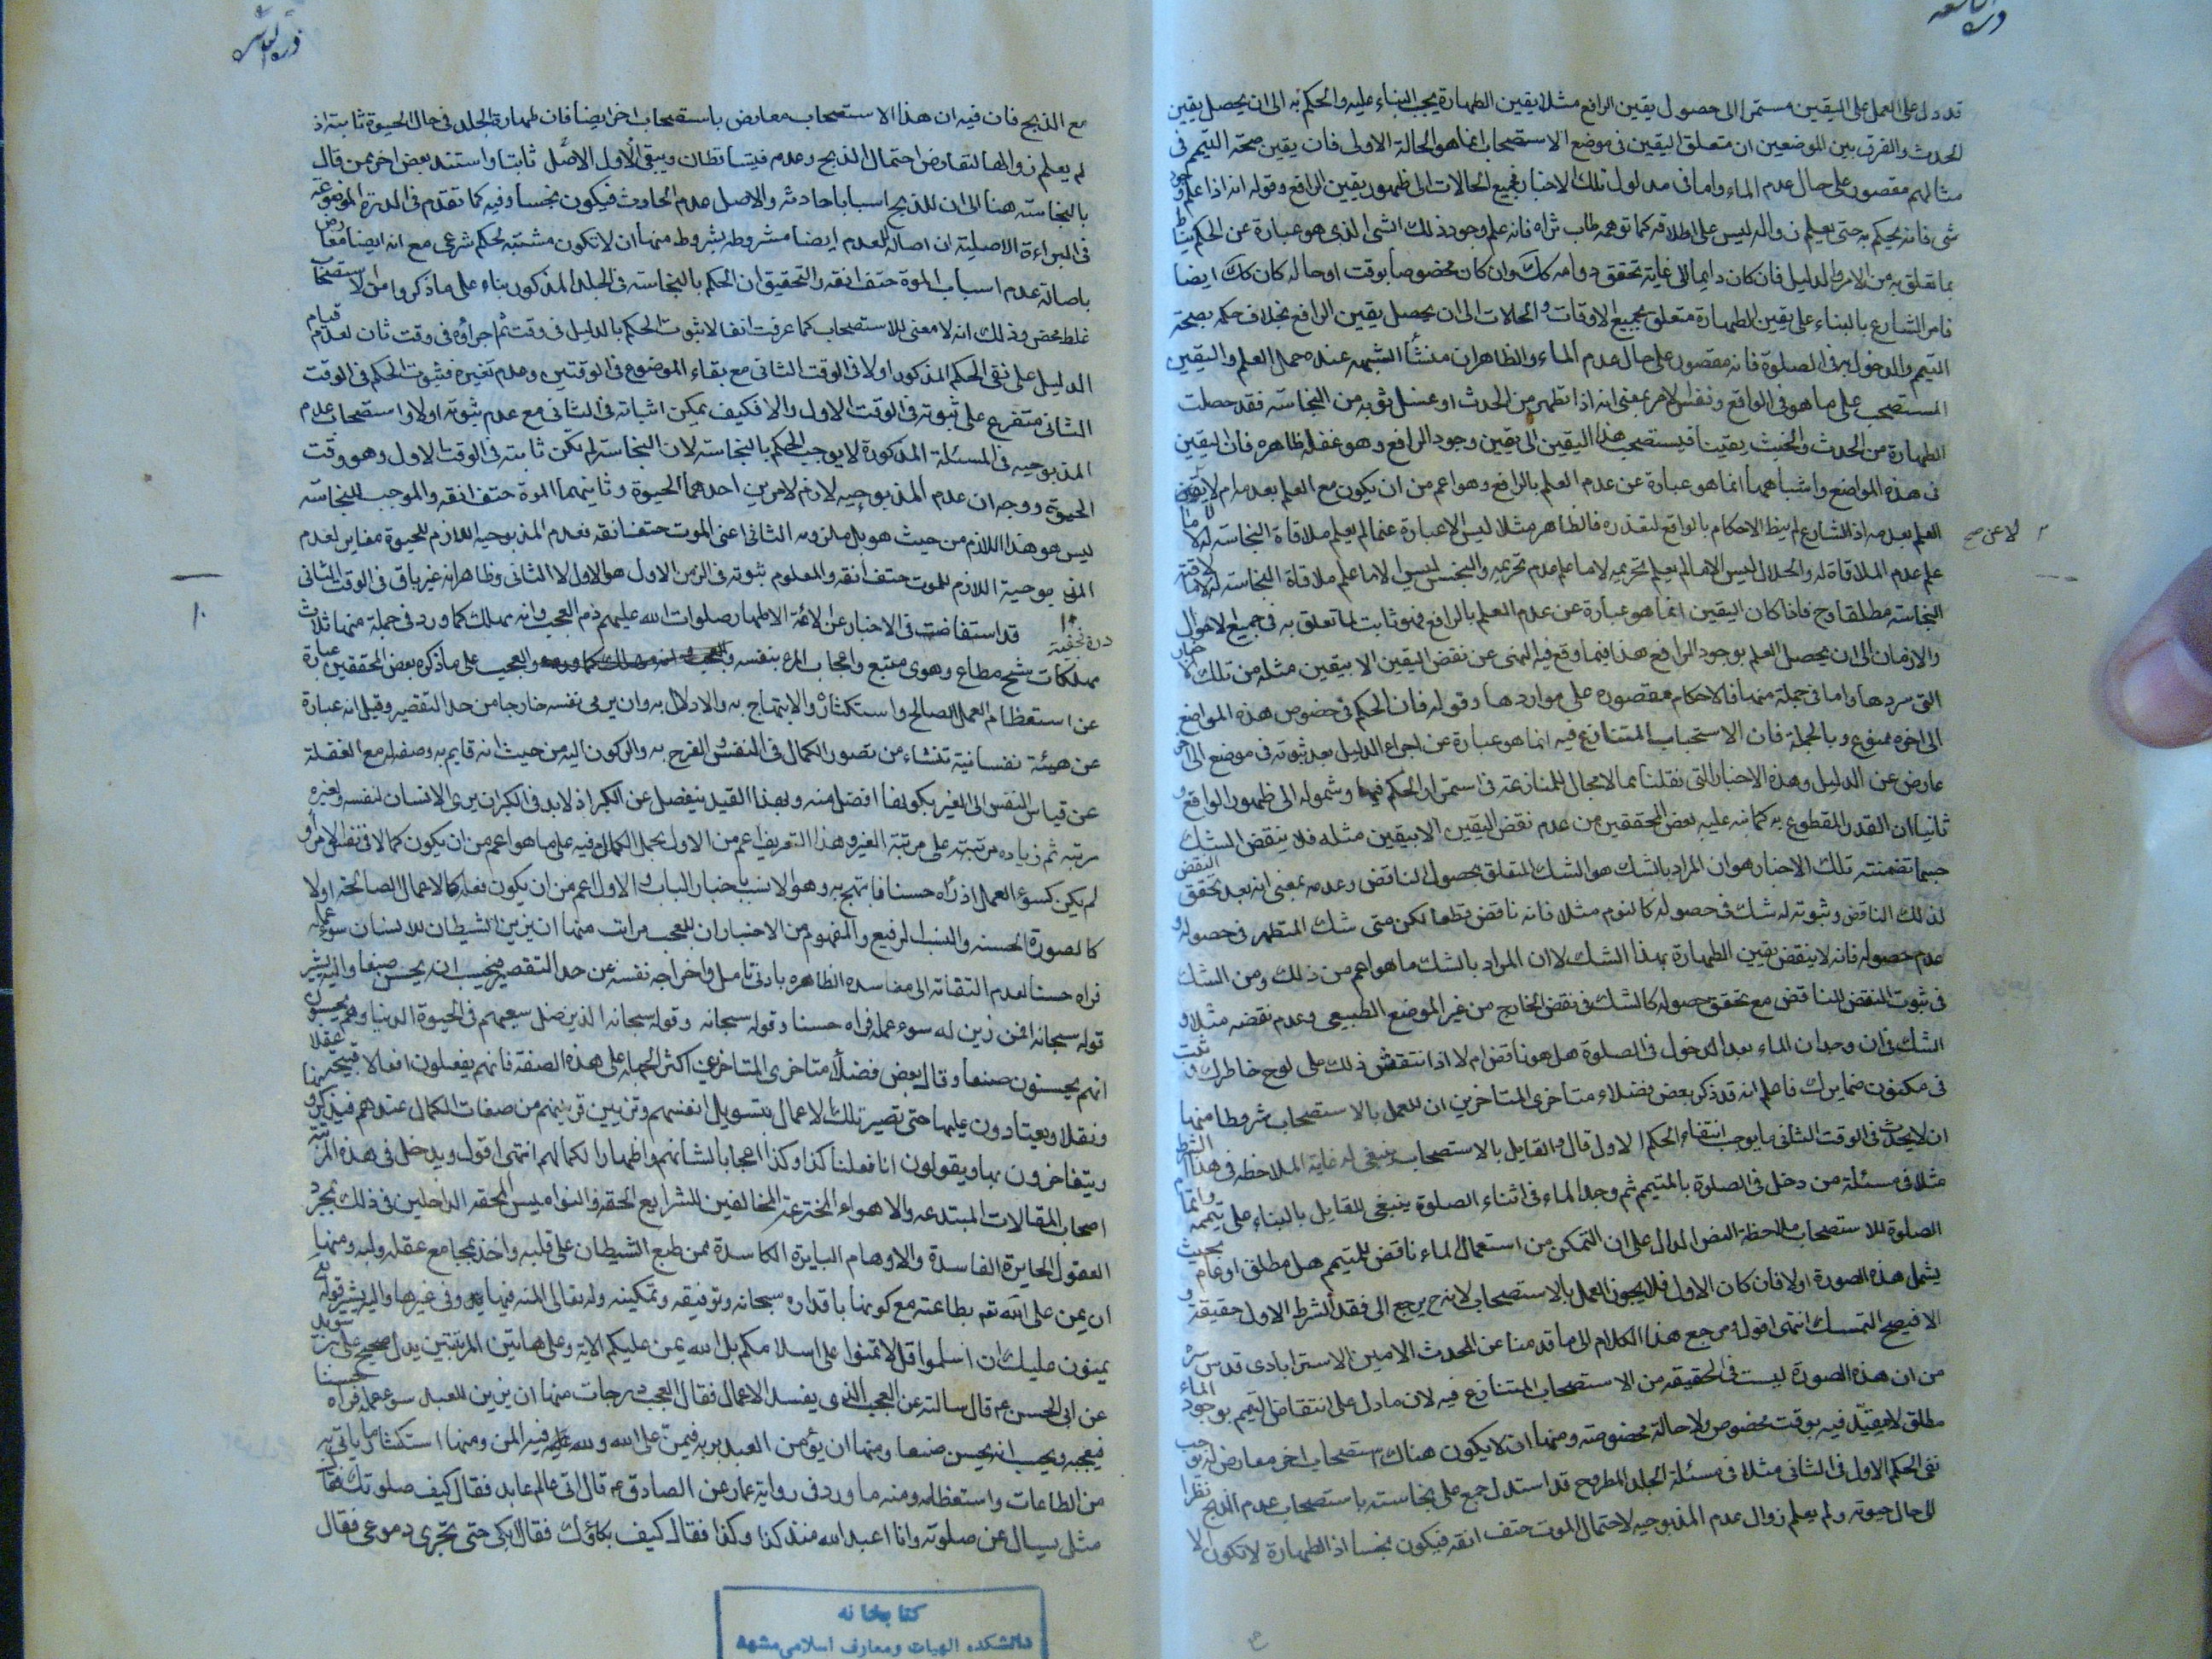 قد دل على العمل على اليقين مستمرا الى حصول يقين الرافع مثلا يقين الطهارة يجب البناء عليه والحكم به الى ان يحصل يقين
الحدث والفرق بين الموضعين ان متعلق اليقين فى موضع الاستصحاب انما هو الحالة الاولى فان يقين صحة التيمم فى
مثالهم مقصور على حال عدم الماء واما فى مدلول تلك الاخبار فجميع الحالات الى ظهور يقين الرافع وقوله انه اذا علم وجود
شى فانه يحكم به حتى يعلم زواله ليس على اطلاقه كما توهمه طاب ثراه فانه علم وجود ذلك الشى الذى هو عبارة عن الحكم
بما تعلق به من الامر والدليل فان كان دايما الى غاية تحقق دوامه كك وان كان مخصوصا بوقت او حاله كان كك ايضا
فامر الشارع بالبناء على يقين الطهارة متعلق بجميع الاوقات والحالات الى ان يحصل يقين الرافع بخلاف حكمه بصحة
التيمم والدخول به فى الصلوة فانه مقصور على حال عدم الماء والظاهر ان منشأ الشبهه عنده حمل العلم واليقين
المستصحب على ما هو فى الواقع ونفس الامر بمعنى انه اذا تطهر من الحدث او غسل ثوبه من النجاسته فقد حصلت
الطهارة من الحدث والخبث يقينا فيستصحب هذا اليقين الى يقين وجود الرافع وهو غفله ظاهره فان اليقين
فى هذه المواضع واشباهها انما هو عبارة عن عدم العلم بالرافع وهو اعم من ان يكون مع العلم بعدمه ام لا
العلم بعدمه اذ الشارع لم ينط الاحكام بالواقع لتعذره فالطاهر مثلا ليس الا عبارة عما لم يعلم ملاقاة النجاسته له لا ما
علم عدم الملاقاة له والحلال ليس الا ما لم يعلم تحريمه لا ما علم عدم تحريمه والنجس ليس الا ما علم ملاقاة النجاسته له لا ما لاقته
النجاسته مطلقا وح فاذا كان اليقين انما هو عبارة عن عدم العلم بالرافع فهو ثابت لما تعلق به فى جميع الاحوال
والازمان الى ان يحصل العلم بوجود الرافع هذا فيما وقع فيه النهى عن نقض اليقين الا بيقين مثله من تلك الاخبار
التى سردها واما فى جملة منها فالاحكام مقصوره على مواردها وقوله فان الحكم فى خصوص هذه المواضع
الى اخره ممنوع وبالجملة فان الاستصحاب المتنازع فيه انما هو عبارة عن اجراء الدليل بعد ثبوته فى موضع الى اخر
عارض عن الدليل وهذه الاخبار التى نقلنا مما لا مجال للمنازعة فى استمرار الحكم فيها وشموله الى ظهور الواقع و
ثانيا ان القدر المقطوع به كما نبه عليه بعض المحققين من عدم نقض اليقين الا بيقين مثله فلا ينقض الشك
حسبما تضمنته تلك الاخبار هو ان المراد بالشك هو الشك المتعلق بحصول الناقض وعدمه بمعنى انه بعد تحقق النقض
لذلك الناقض وثبوته له شك فى حصوله كالنوم مثلا فانه ناقض قطعا لكن متى شك المتطهر فى حصوله و
عدم حصوله فانه لا ينقض يقين الطهارة بهذا الشك لا ان المراد بالشك ما هو اعم من ذلك ومن الشك
فى ثبوت النقض للناقض مع تحقق حصوله كالشك فى نقض الخارج من غير الموضع الطبيعى وعدم نقضه مثلا و
الشك فى ان وجدان الماء بعد الدخول فى الصلوة هل هو ناقض ام لا اذا انتقش ذلك على لوح خاطرك وثبت
فى مكنون ضمايرك فاعلم انه قد ذكر بعض فضلاء متأخرى المتاخرين ان للعمل بالاستصحاب شروطا منها
ان لا يحدث فى الوقت الثانى ما يوجب انتفاء الحكم الاول قال والقايل بالاستصحاب ينبغى له غاية الملاحظه فى هذا الشرط
مثلا فى مسئلة من دخل فى الصلوة بالمتيمم ثم وجد الماء فى اثناء الصلوة ينبغى للقايل بالبناء على تيممه واتمام
الصلوة للاستصحاب ملاحظة النص الدال على ان التمكن من استعمال الماء ناقض للتيمم هل مطلق او عام بحيث
يشمل هذه الصورة اولا فان كان الاول فلا يجوز العمل بالاستصحاب لانه ح يرجع الى فقد الشرط الاول حقيقة و
الا فيصح التمسك انتهى اقول ومرجع هذا الكلام الى ما قدمنا عن المحدث الامين الاسترابادى قدس سره
من ان هذه الصورة ليست فى الحقيقه من الاستصحاب المتنازع فيه لان ما دل على انتقاض التيمم بوجود الماء
مطلق لا يتقيد فيه بوقت مخصوص ولا حالة مخصوصته ومنها ان لا يكون هناك استصحاب اخر معارض له يوجب
نفى الحكم الاول فى الثانى مثلا فى مسئلة الجلد المطروح قد استدل جمع على نجاسته باستصحاب عدم الذبح نظرا
الى حال حيوته ولم يعلم زوال عدم المذبوحيه لاحتمال الموت حتف انفه فيكون نجسا اذ الطهارة لا تكون الا
لا عن صح
مع الذبح فان فيه ان هذا الاستصحاب معارض باستصحاب اخر ايضا فان طهارة الجلد فى حال الحيوة ثابته اذ
لم يعلم زوالها لتعارض احتمال الذبح وعدمه فيتساقطان ويبقى الاول الاصل ثابتا واستند بعض اخر ممن قال
بالنجاسته هنا الى ان للذبح اسبابا حادثه والاصل عدم الحادث فيكون نجسا وفيه كما تقدم فى الدرة الموضوعة
فى البراءة الاصلية ان اصالة العدم ايضا مشروطه بشروط منها ان لا تكون مشتبه لحكم شرعى مع انه ايضا معارض
باصالة عدم اسباب الموة حتف انفه والتحقيق ان الحكم بالنجاسته فى الجلد المذكور بناء على ما ذكروا من الاستصحاب
غلط محض وذلك انه لا معنى للاستصحاب كما عرفت انفا الا ثبوت الحكم بالدليل فى وقت ثم اجراؤه فى وقت ثان لعدم قيام
الدليل على نفى الحكم المذكور اولا فى الوقت الثانى مع بقاء الموضوع فى الوقتين وعدم تغيره فثبوت الحكم فى الوقت
الثانى متفرع على ثبوته فى الوقت الاول والا فكيف يمكن اثباته فى الثانى مع عدم ثبوته اولا واستصحاب عدم
المذبوحيه فى المسئلة المذكورة لا يوجب الحكم بالنجاسته لان النجاسته لم يكن ثابته فى الوقت الاول وهو وقت
الحيوة ووجه ان عدم المذبوحيه لازم لامرين احدهما الحيوة وثانيهما الموة حتف انفه والموجب للنجاسته
ليس هو هذا اللازم من حيث هو بل ملزومه الثانى اعنى الموت حتف انفه فعدم المذبوحيه اللازم للحيوة مغاير لعدم
المذبوحية اللازم للموت حتف انفه والمعلوم ثبوته فى الزمن الاول هو الاول لا الثانى وظاهر انه غير باق فى الوقت الثانى
درة نجفية قد استفاضت فى الاخبار عن الائمة الاطهار صلوات الله عليهم ذم العجب وانه مهلك كما ورد فى جملة منها ثلاث
مهلكات شح مطاع وهوى متبع واعجاب المرء بنفسه والعجب على ما ذكره بعض المحققين عبارة
عن استعظام العمل الصالح واستكثاره والابتهاج به والادلال به وان يرى نفسه خارجا من حد التقصير وقيل انه عبارة
عن هيئة نفسانية تنشاء من تصور الكمال فى النفس والفرح به والركون اليه من حيث انه قايم به وصفه له مع الغفلة
عن قياس النفس الى الغير بكونها افضل منه وبهذا القيد ينفصل عن الكبر اذ لا بد فى الكبر ان يرى الانسان لنفسه ولغيره
مرتبه ثم زياده مرتبته على مرتبة الغير وهذا التعريف اعم من الاول بحمل الكمال فيه على ما هو اعم من ان يكون كمالا فى نفس الامر او
لم يكن كسوء العمل اذ رأه حسنا فابتهج به وهو الانسب باخبار الباب والاول اعم من ان يكون فعله كالاعمال الصالحة او لا
كالصورة الحسنه والنسب الرفيع والمفهوم من الاخبار ان للعجب مراتب منها ان يزين الشيطان للانسان سوء عمله
فراه حسنا لعدم التفاته الى مفاسده الظاهره بادنى تامل واخراجه نفسه عن حد التقصير فيحسب انه يحسن صنعا واليه يشير
قوله سبحانه افمن زين له سوء عمله فراه حسنا وقوله سبحانه وقوله سبحانه الذين ضل سعيهم فى الحيوة الدنيا وهم يحسبون
انهم يحسنون صنعا وقال بعض فضلاء متاخرى المتاخرين اكثر الجهلة على هذه الصفة فانهم يفعلون افعالا قبيحة عقلا
ونقلا ويعتادون عليها حتى تصير تلك الاعمال بتسويل انفسهم وتزيين قرينهم من صفات الكمال عندهم فيذكرونها
ويتفاخرون بها ويقولون انا فعلنا كذا وكذا اعجابا لشانهم واظهارا لكمالهم انتهى اقول ويدخل فى هذه المرتبة
اصحاب المقالات المبتدعه والاهواء المخترعة المخالفين للشرايع الحقه والنواميس المحقه الداخلين فى ذلك بمجرد
العقول الحايرة الفاسدة والاوهام البايرة الكاسدة ممن طبع الشيطان على قلبه واخذ بمجامع عقله ولبه ومنها
ان يمن على الله تع بطاعته مع كونها باقداره سبحانه وتوفيقه وتمكينه وله تعالى المنه فيها وفى غيرها واليه يشير قوله تع
يمنون عليك ان اسلموا قل لا تمنوا على اسلامكم بل الله يمن عليكم الاية وعلى هاتين المرتبتين يدل صحيح على بن سويد
عن ابى الحسن ع قال سالته عن العجب الذى يفسد الاعمال فقال العجب درجات منها ان يزين للعبد سوء عمله فراه حسنا
فيعجبه ويحسب انه يحسن صنعا ومنها ان يؤمن العبد بربه فيمن على الله ولله عليه فيه المن ومنها استكثار ما ياتى به
من الطاعات واستعظامه ومنه ما ورد فى رواية عمار عن الصادق ع قال اتى عالم عابد فقال كيف صلوتك فقال
مثلى يسال عن صلوته وانا اعبد الله منذ كذا وكذا فقال كيف بكاؤك فقال ابكى حتى تجرى دموعى فقال
١٠
كتابخانه
دانشكده الهيات ومعارف اسلامى مشهد